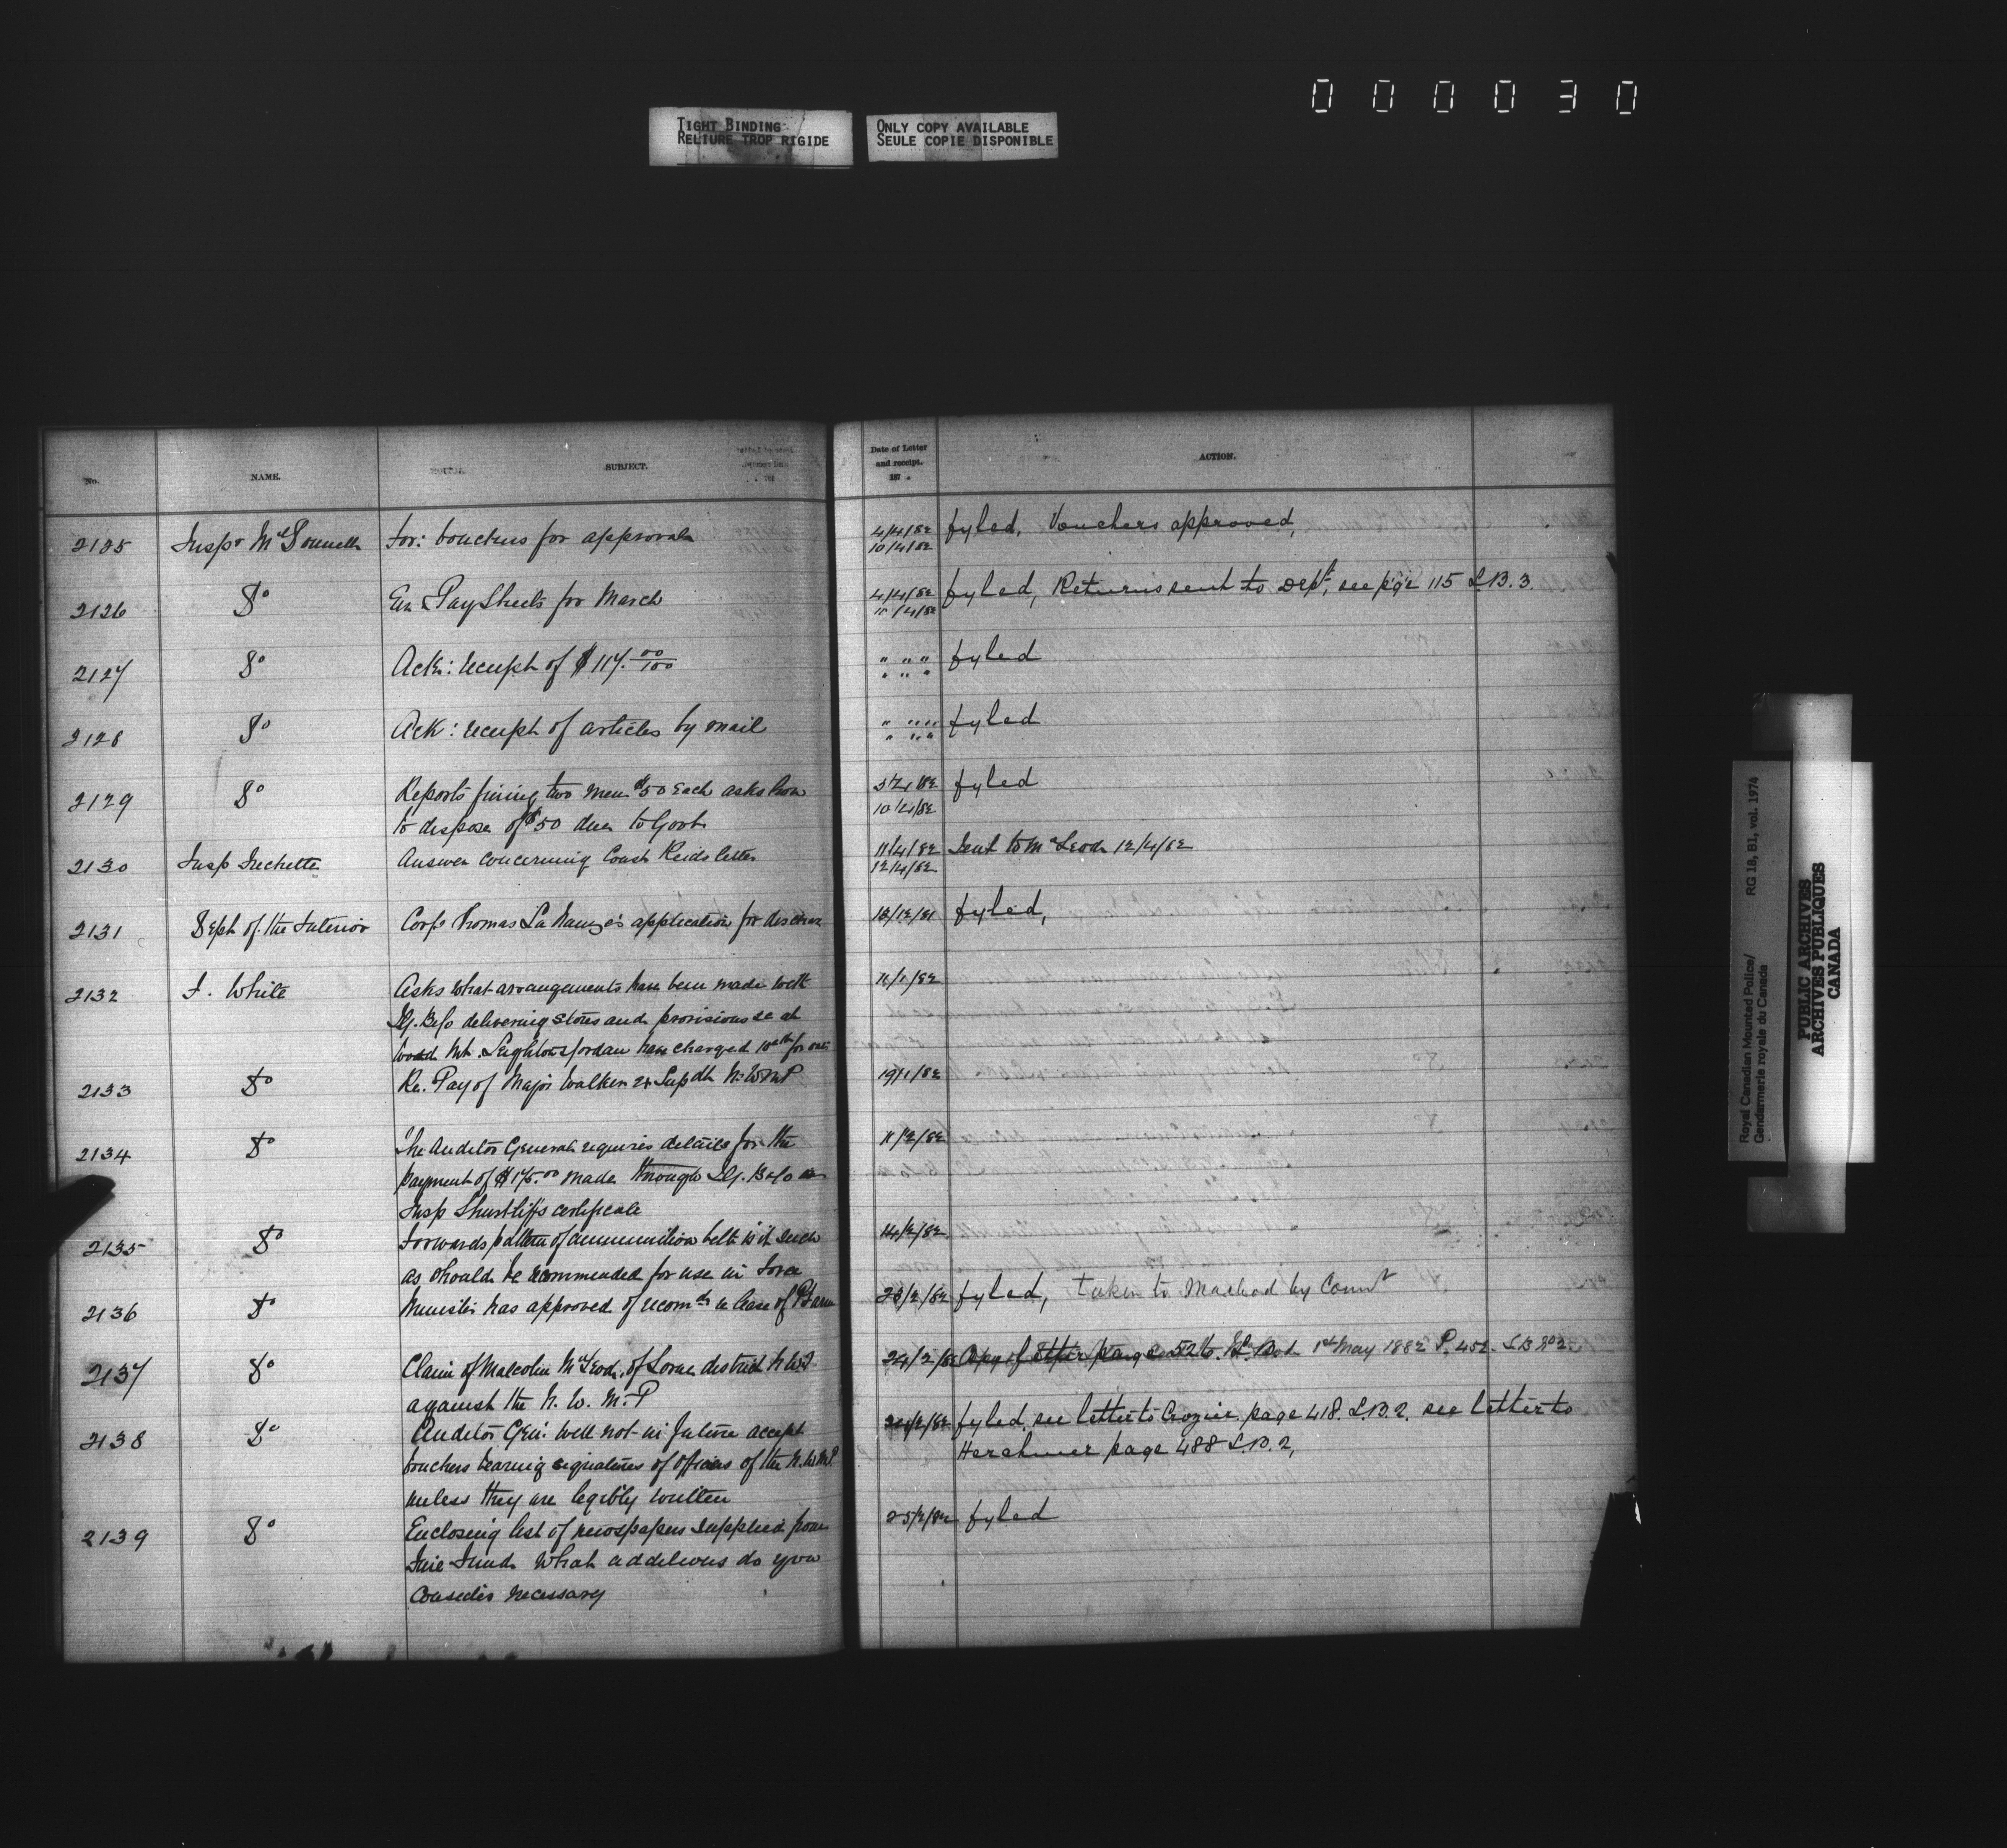 000030
TIGHT BINDING
RELIURE TROP RIGIDE
ONLY COPY AVAILABLE
SEULE COPIE DISPONIBLE
No. NAME. SUBJECT. Date of Letter and receipt. 187 . ACTION.
2125 Inspr McDonnell For: vouchers for approval 4/4/82 fyled, Vouchers approved,
10/4/82
2126 Do Pay Sheets for March 4/4/82 fyled, Returns sent to Dept, see page 115 L.B. 3.
10/4/82
2127 Do Ack: receipt of $117. 00/100 " " " fyled
" " "
2128 Do Ack: receipt of articles by mail " " " fyled
" " "
2129 Do Reports fining two men $50 each asks how fyled
to dispose of $50 due to Govt 10/4/82
2130 Insp Frechette Answer concerning Const Reids letter 11/4/82 Sent to McLeod 12/4/82
12/4/82
2131 Dept of the Interior Corpl Thomas La Nauze's application for fyled,
2132 F. White Asks what arrangements have been made with 11/1/82
I.G. B & Co delivering stores and provisions &c at
Wood Mt. Leighton & Jordan have charged for
2133 Do Re. Pay of Major Walker Supdt N.W.M.P 19/1/82
2134 Do The Auditor General requires details for the 11/2/82
payment of made through I.G. B & Co on
Insp Shurtliffs certificate
2135 Do Forwards pattern of ammunition belt is it such 14/2/82
as should be recommended for use in Force
2136 Do Minister has approved of recomd lease of 23/2/82 fyled, taken to Macleod by Comr
2137 Do Claim of Malcolm McLeod, of Lorne district N.W.T 24/2/82 Copy of letter page 526. 1st May 1882 P. 452. L.B No 2
against the N. W. M. P
2138 Do Auditor Gen: will not in future accept 24/2/82 fyled, see letter to Crozier page 418. L.B. 2. see letter to
vouchers bearing signatures of officers of the N.W.M.P. Herchmer page 488 L.B. 2,
unless they are legibly written
2139 Do Enclosing list of newspapers supplied from 25/2/82 fyled
Fine Fund. What additions do you
consider necessary
Royal Canadian Mounted Police/ RG 18, B1, vol. 1974
Gendarmerie royale du Canada
PUBLIC ARCHIVES
ARCHIVES PUBLIQUES
CANADA